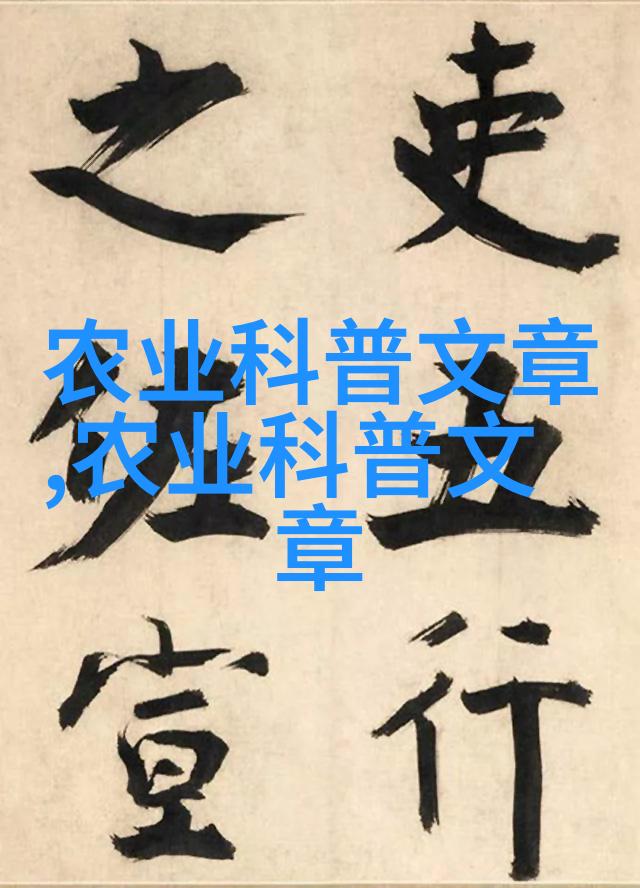 吏行
之宣
农业科普文章
,农业科普文
章